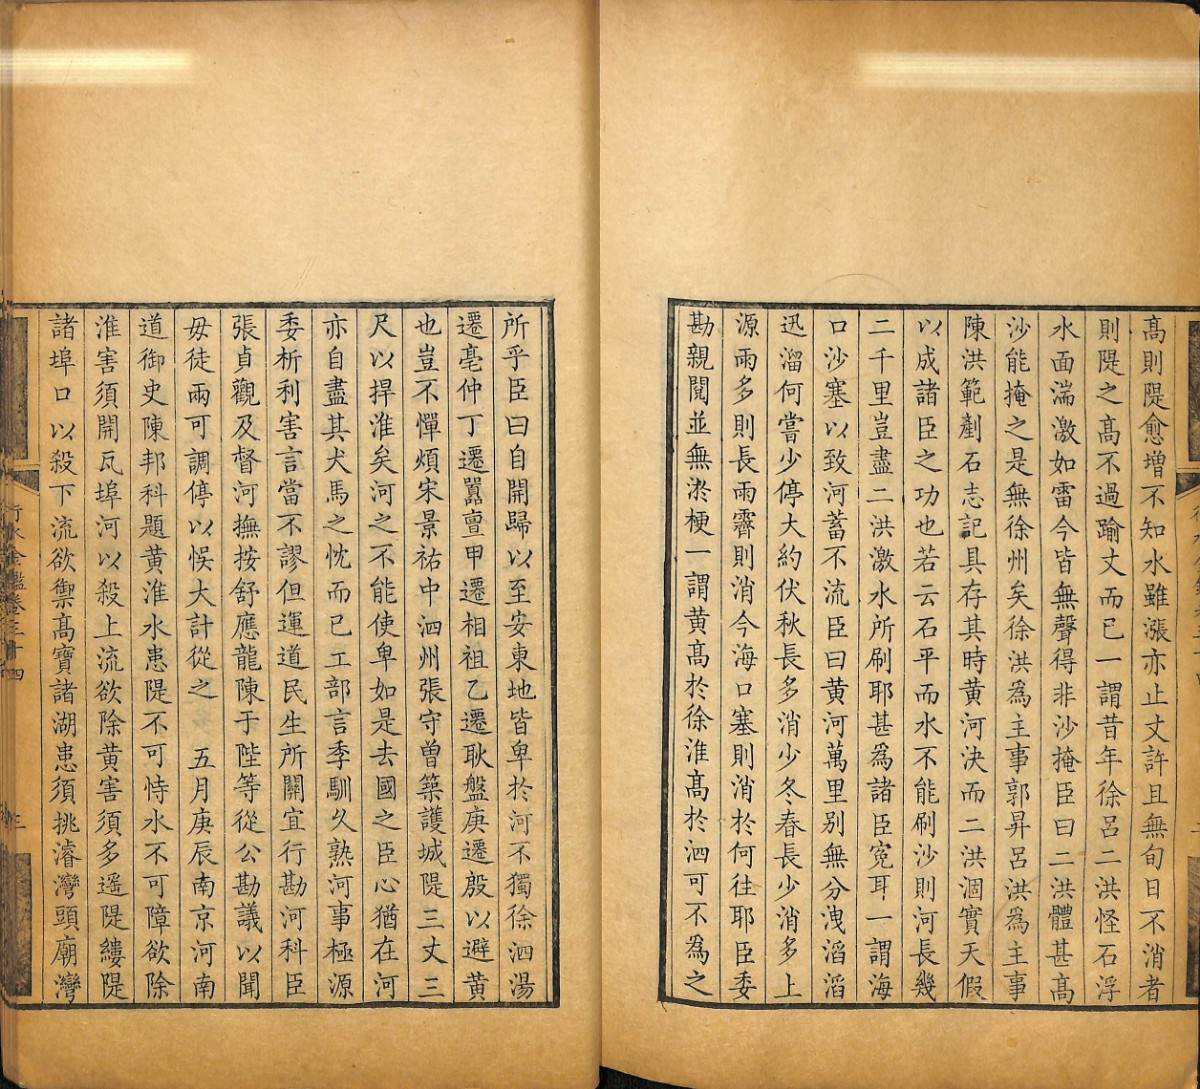 高則隄愈增不知水雖漲亦止丈許且無旬日不消者
則隄之高不過踰丈而已一謂昔年徐呂二洪怪石浮
水面湍激如雷今皆無聲得非沙掩臣曰二洪體甚高
沙能掩之是無徐州矣徐洪為主事郭昇呂洪為主事
陳洪範剷石志記具存其時黃河決而二洪涸實天假
以成諸臣之功也若云石平而水不能刷沙則河長幾
二千里豈盡二洪激水所刷耶甚為諸臣冤耳一謂海
口沙塞以致河蓄不流臣曰黃河萬里別無分洩滔滔
迅溜何嘗少停大約伏秋長多消少冬春長少消多上
源雨多則長雨霽則消今海口塞則消於何往耶臣委
勘親閱並無淤梗一謂黃高於徐淮高於泗可不為之
所乎臣曰自開歸以至安東地皆卑於河不獨徐泗湯
遷亳仲丁遷囂亶甲遷相祖乙遷耿盤庚遷殷以避黃
也豈不憚煩宋景祐中泗州張守曾築護城隄三丈三
尺以捍淮矣河之不能使卑如是去國之臣心猶在河
亦自盡其犬馬之忱而已工部言季馴久熟河事極源
委析利害言當不謬但運道民生所關宜行勘河科臣
張貞觀及督河撫按舒應龍陳于陛等從公勘議以聞
毋徒兩可調停以悞大計從之　五月庚辰南京河南
道御史陳邦科題黃淮水患隄不可恃水不可障欲除
淮害須開瓦埠河以殺上流欲除黃害須多遥隄縷隄
諸埠口以殺下流欲禦高寶諸湖患須挑濬灣頭廟灣
行水金鑑卷三十四